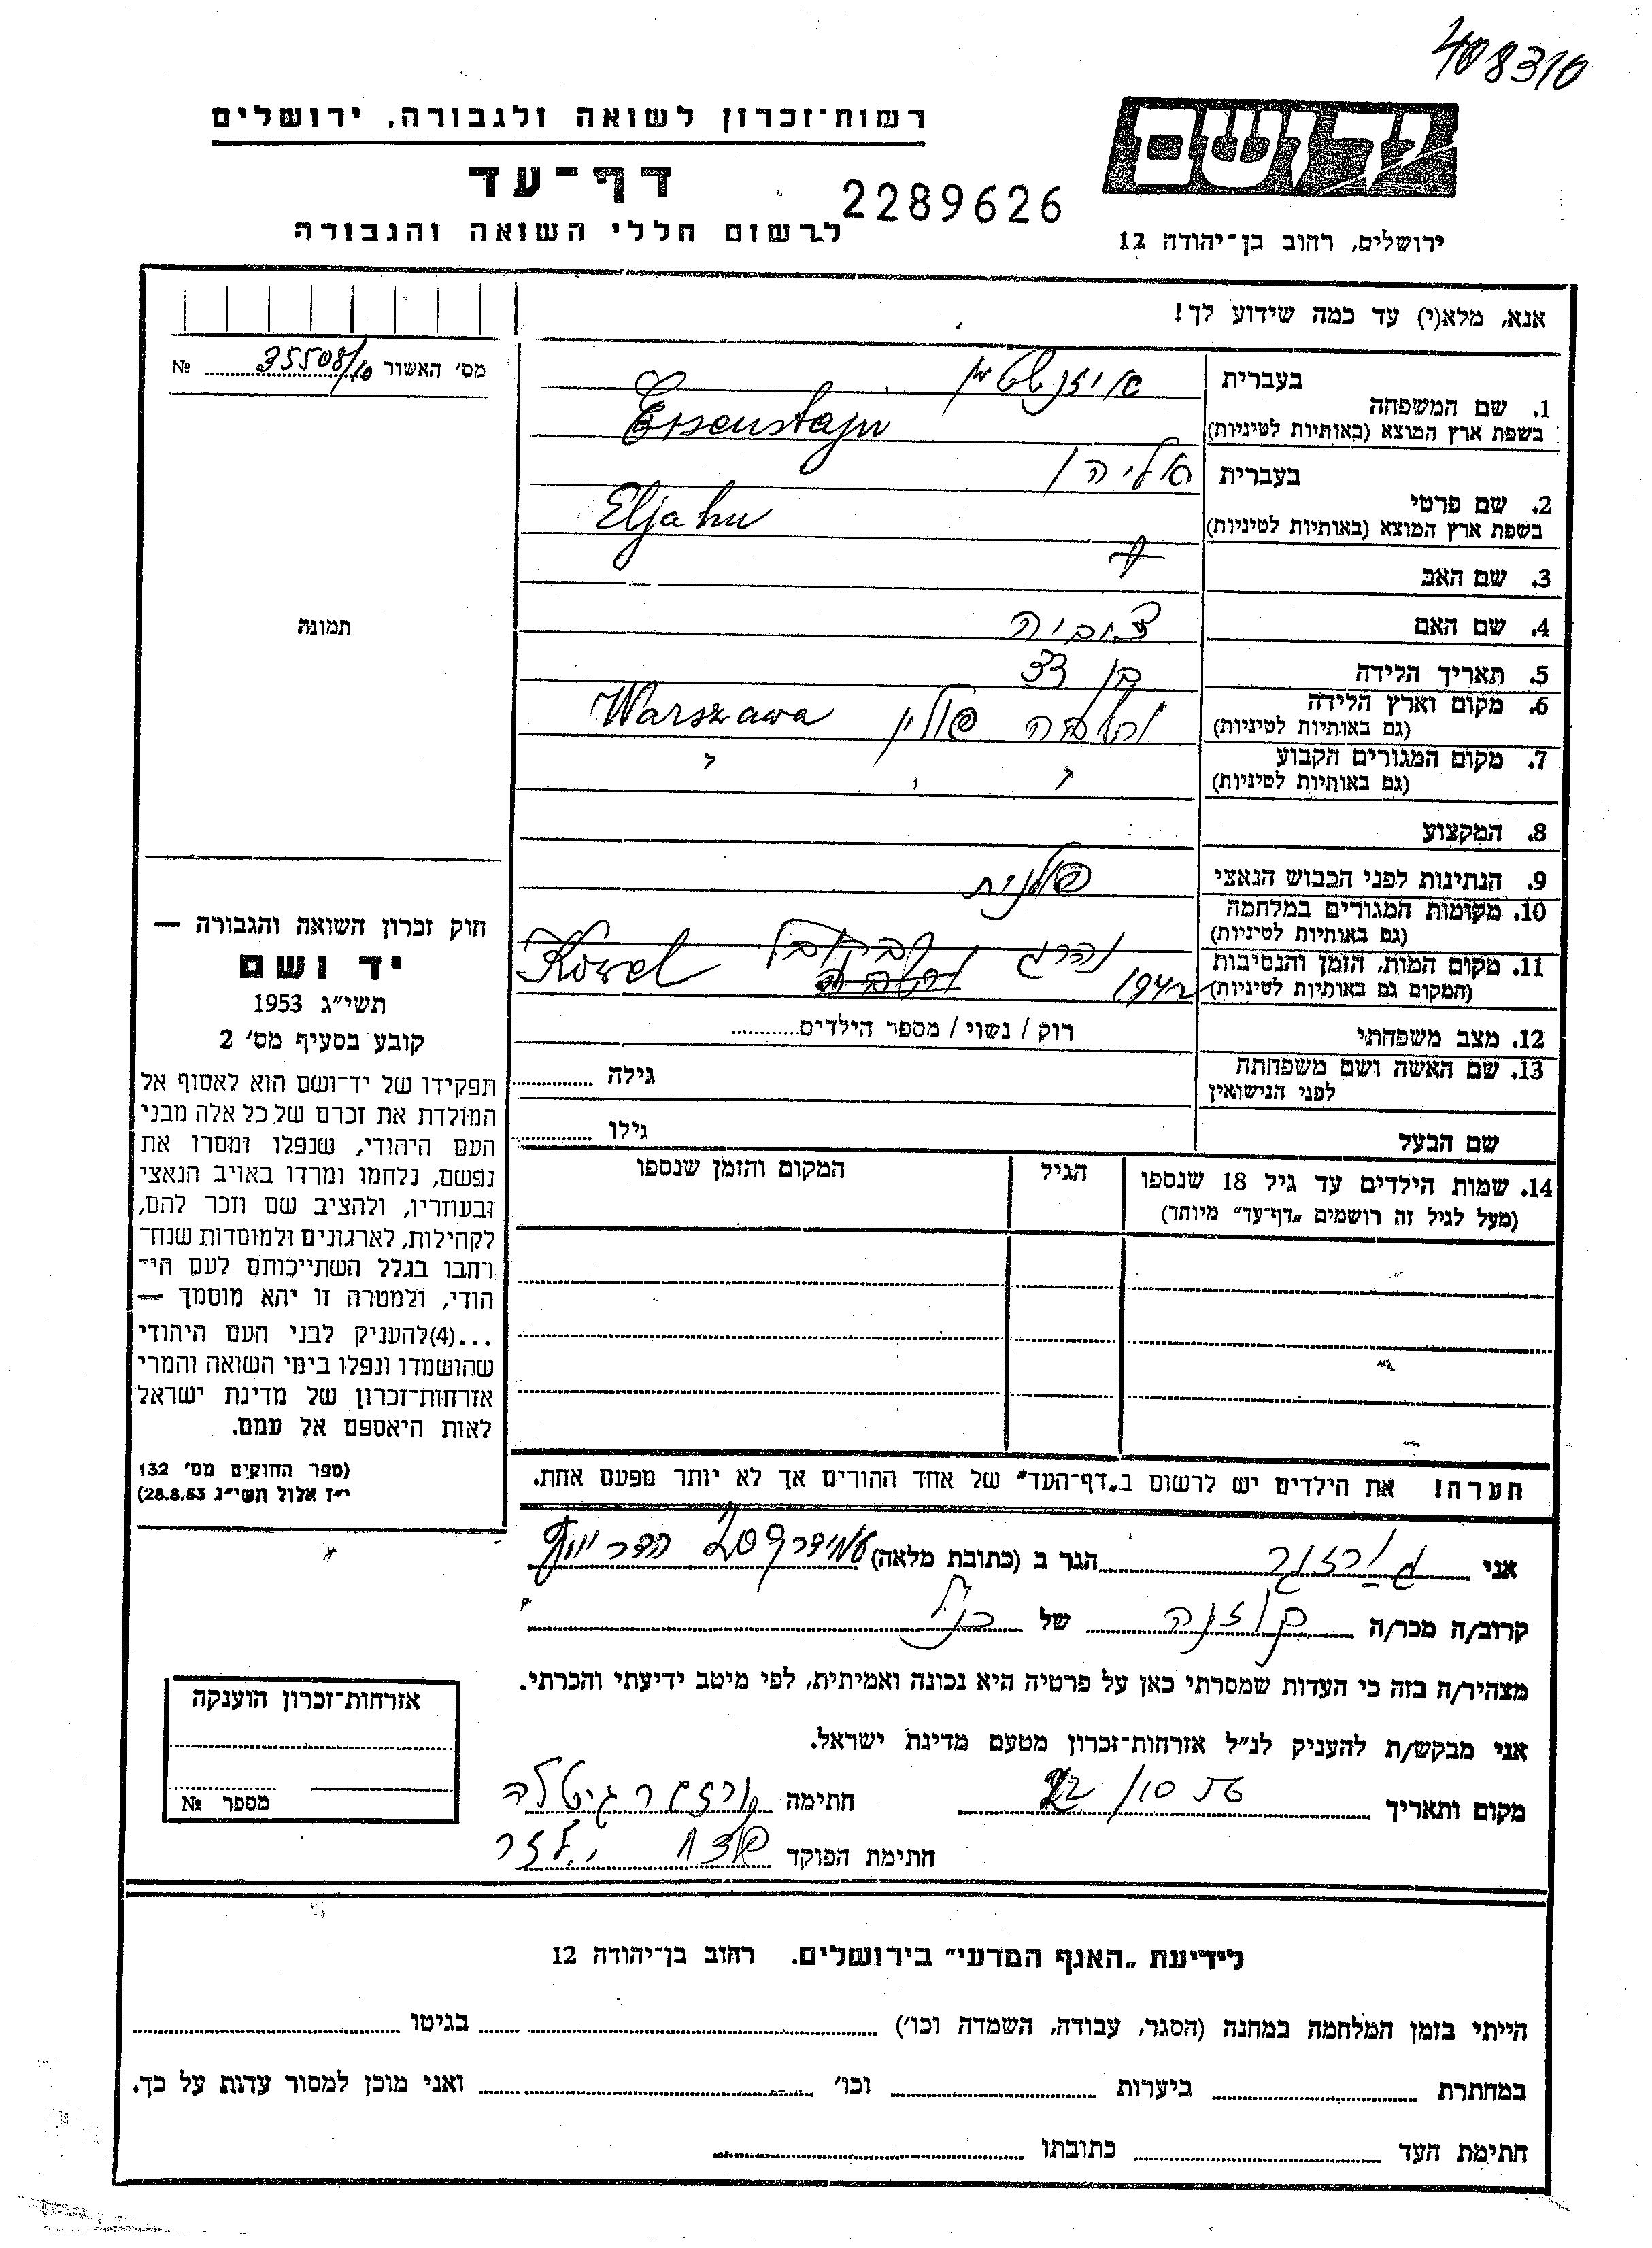 408310
רשות־זכרון לשואה ולגבורה, ירושלים
יד ושם
דף־עד
2289626
לרשום חללי השואה והגבורה
ירושלים, רחוב בן־יהודה 12
אנא, מלא(י) עד כמה שידוע לך!
מס׳ האשור 35508/10 №
1. שם המשפחה בעברית
בשפת ארץ המוצא (באותיות לטיניות) Eisenstajn
2. שם פרטי בעברית אליהו
בשפת ארץ המוצא (באותיות לטיניות) Eljahu
3. שם האב
4. שם האם צוביה
5. תאריך הלידה בן 33
6. מקום וארץ הלידה (גם באותיות לטיניות) ורשה פולין Warszawa
7. מקום המגורים הקבוע (גם באותיות לטיניות) " " "
8. המקצוע
9. הנתינות לפני הכבוש הנאצי פולנית
10. מקומות המגורים במלחמה (גם באותיות לטיניות)
11. מקום המות, הזמן והנסיבות (המקום גם באותיות לטיניות) נהרג בקובל Kowel 1942
12. מצב משפחתי רוק / נשוי / מספר הילדים
13. שם האשה ושם משפחתה לפני הנישואין גילה
שם הבעל גילו
14. שמות הילדים עד גיל 18 שנספו
(מעל לגיל זה רושמים „דף־עד" מיוחד)
הגיל
המקום והזמן שנספו
תמונה
חוק זכרון השואה והגבורה —
יד ושם
תשי״ג 1953
קובע בסעיף מס׳ 2
תפקידו של יד־ושם הוא לאסוף אל
המולדת את זכרם של כל אלה מבני
העם היהודי, שנפלו ומסרו את
נפשם, נלחמו ומרדו באויב הנאצי
ובעוזריו, ולהציב שם וזכר להם,
לקהילות, לארגונים ולמוסדות שנח־
רבו בגלל השתייכותם לעם הי־
הודי, ולמטרה זו יהא מוסמך —
...(4)להעניק לבני העם היהודי
שהושמדו ונפלו בימי השואה והמרי
אזרחות־זכרון של מדינת ישראל
לאות היאספם אל עמם.
(ספר החוקים מס׳ 132
י״ז אלול תשי״ג 28.8.53)
הערה! את הילדים יש לרשום ב„דף־העד" של אחד ההורים אך לא יותר מפעם אחת.
אני הגר ב (כתובת מלאה)
קרוב/ה מכר/ה בן דודה של כנ״ל
מצהיר/ה בזה כי העדות שמסרתי כאן על פרטיה היא נכונה ואמיתית, לפי מיטב ידיעתי והכרתי.
אני מבקש/ת להעניק לנ״ל אזרחות־זכרון מטעם מדינת ישראל.
מקום ותאריך 22/10 56 חתימה
חתימת הפוקד
אזרחות־זכרון הוענקה
מספר №
לידיעת „האגף המדעי" בירושלים. רחוב בן־יהודה 12
הייתי בזמן המלחמה במחנה (הסגר, עבודה, השמדה וכו׳) בגיטו
במחתרת ביערות וכו׳ ואני מוכן למסור עדות על כך.
חתימת העד כתובתו